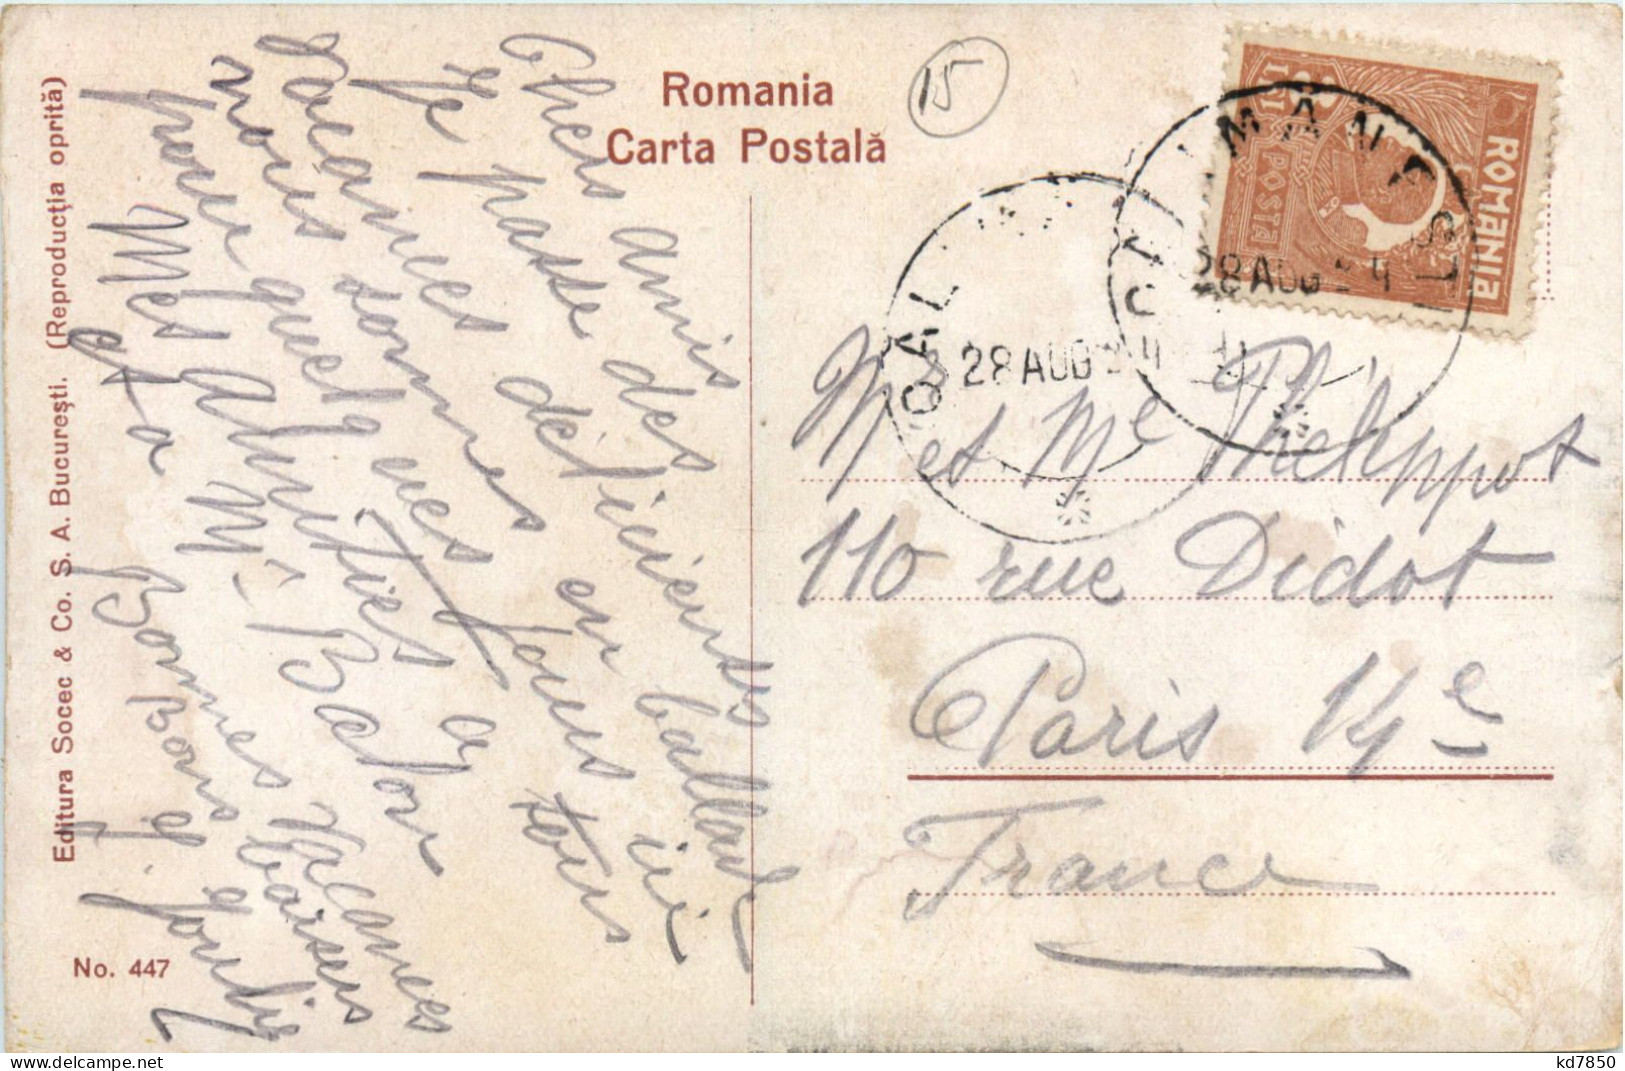 Romania
Carta Postală
15
Chers amis
Je passe des
vacances délicieuses
nous sommes en ballade ici
pour quelques jours
Mes Amitiés à tous
et a Mr Bador
Bonnes Vacances
Bons baisers
ROMANIA
POSTA
CĂLIMĂNEȘTI
28 AUG 24
28 AUG 24
M et Me Phelippot
110 rue Didot
Paris 14e
France
Editura Socec & Co. S. A. București. (Reproducția oprită)
No. 447
delcampe.net
kd7850